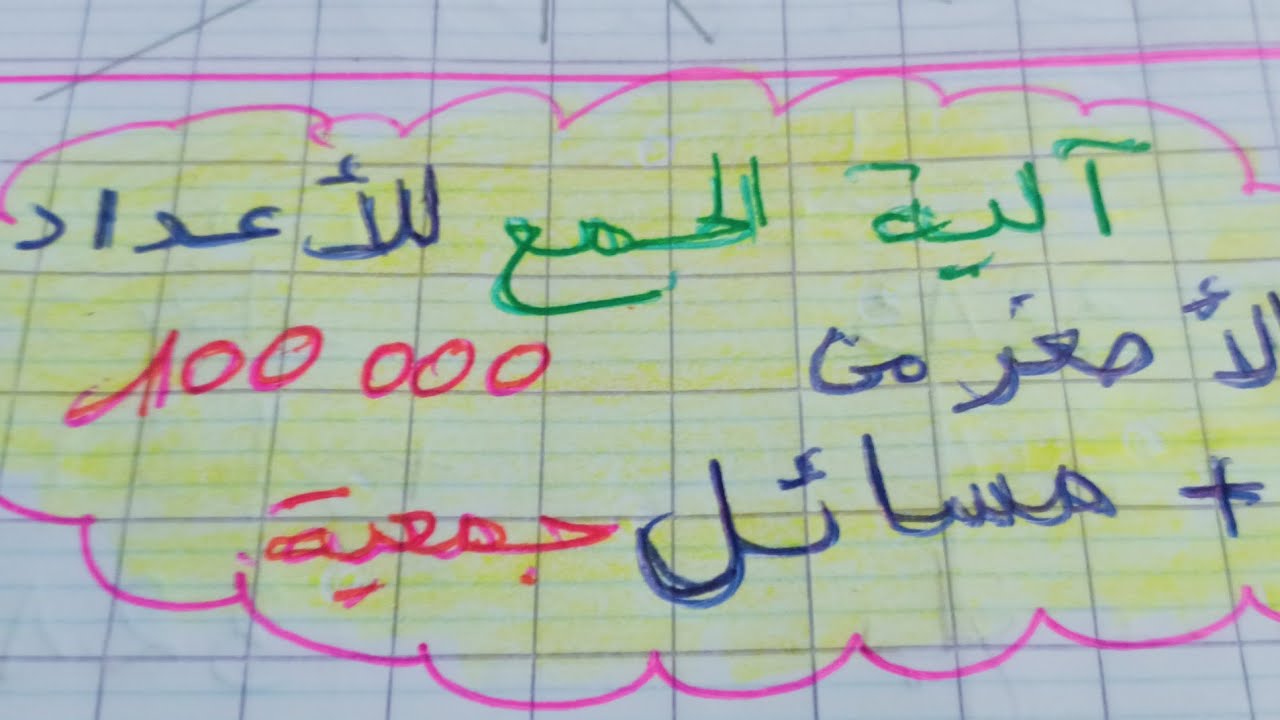 آلية الجمع للأعداد
الأصغر من 100 000
+ مسائل جمعية